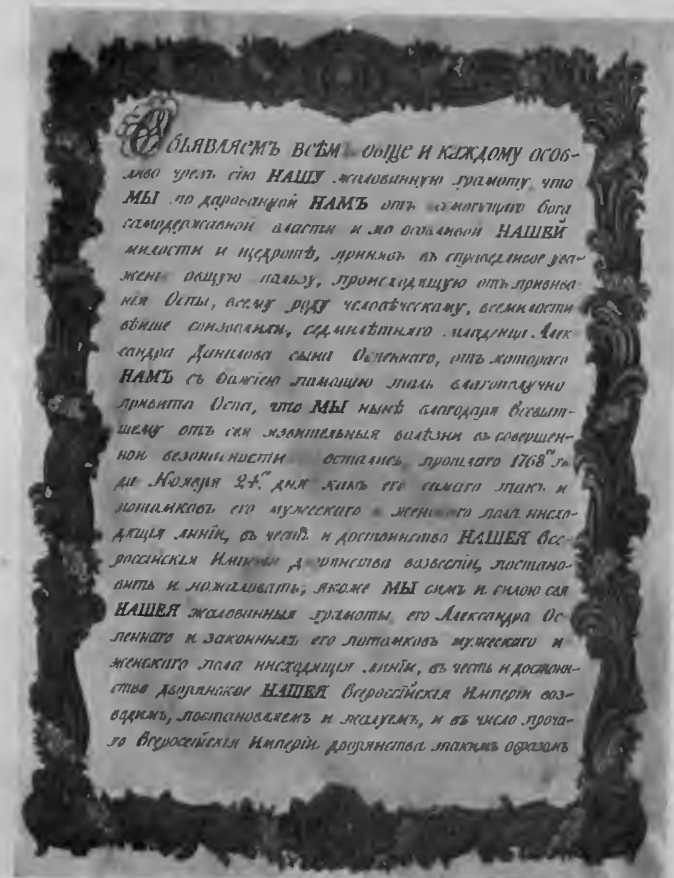 Объявляемъ всѣмъ обще и каждому особ-
ливо чрезъ сію НАШУ жалованную грамоту, что
МЫ по дарованной НАМЪ отъ всемогущаго бога
самодержавной власти и по особливой НАШЕЙ
милости и щедротѣ, принявъ въ справедливое ува-
жені общую пользу, происходящую отъ привива-
нія Оспы, всему роду человѣческому, всемилости
вѣйше соизволили, седмилѣтняго младенца Алек-
сандра Данилова сына Оспеннаго, отъ котораго
НАМЪ съ божіею помощію толь благополучно
привита Оспа, что МЫ нынѣ благодаря Всевыш-
шему отъ сея язвительныя болѣзни въ совершен-
ной безопасности остались, прошлаго 1768го го-
да Ноября 24го дня какъ его самаго такъ и
потомковъ его мужескаго и женскаго пола нисхо-
дящія линіи, въ честь и достоинство НАШЕЯ Все-
россійскія Имперіи дворянства возвести, постано-
вить и пожаловать; якоже МЫ симъ и силою сея
НАШЕЯ жалованныя грамоты его Александра Ос-
пеннаго и законныхъ его потомковъ мужескаго и
женскаго пола нисходящія линіи, въ честь и достоин-
ство дворянское НАШЕЯ Всероссійскія Имперіи воз-
водимъ, постановляемъ и жалуемъ, и въ число проча-
го Всеросейскія Имперіи дворянства такимъ образомъ